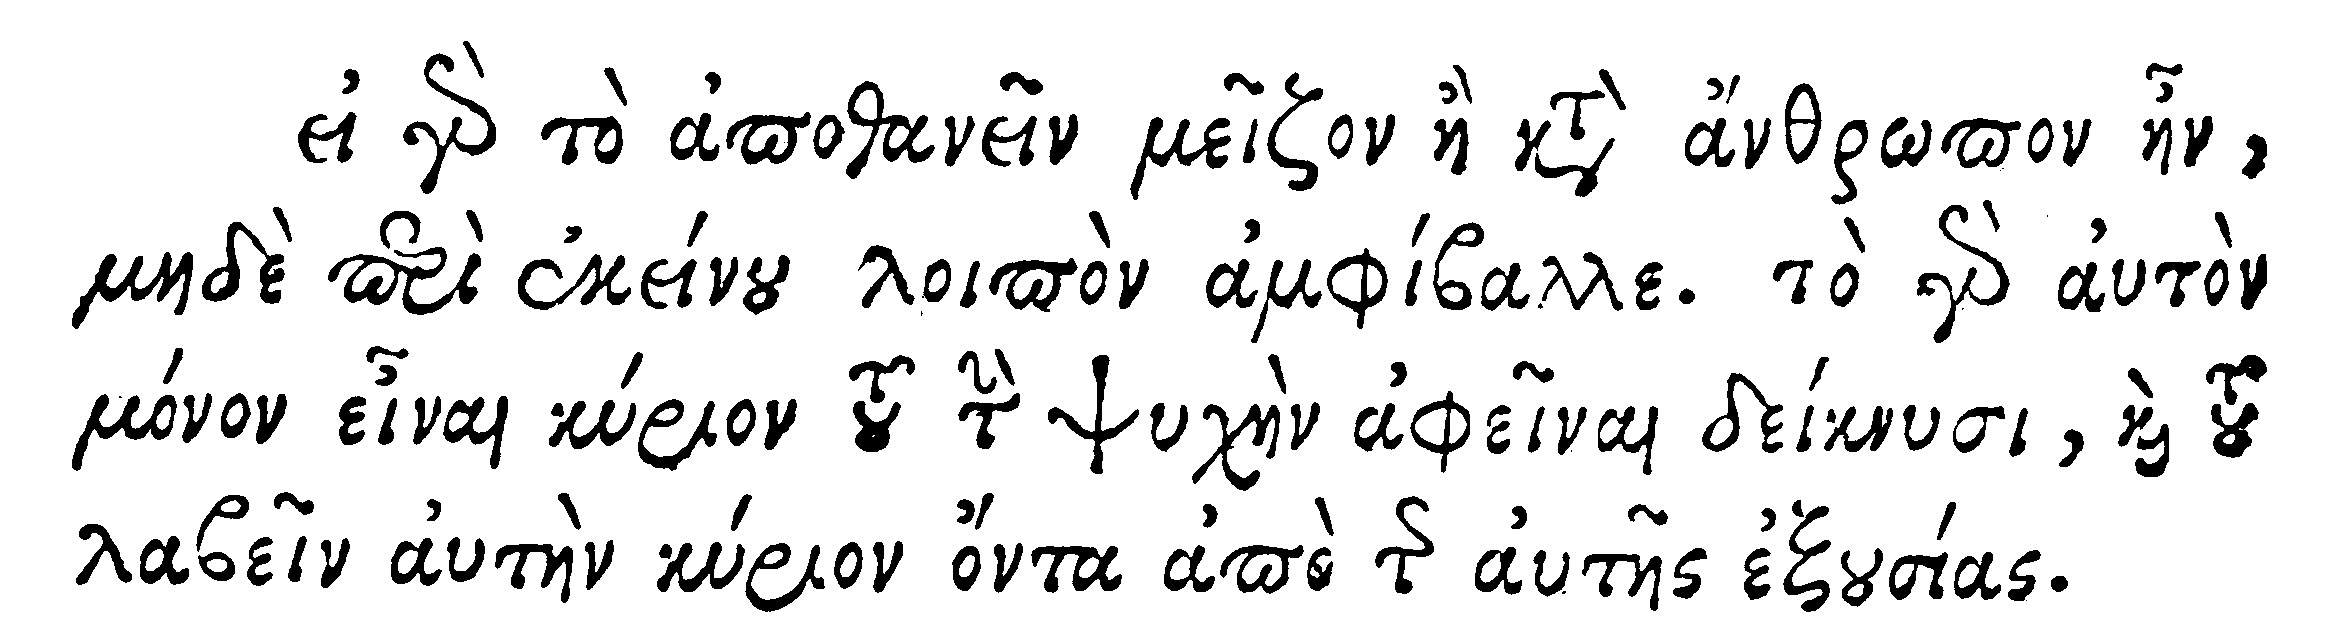 εἰ γὰρ τὸ ἀποθανεῖν μεῖζον ἢ κατὰ ἄνθρωπον ἦν,
μηδὲ περὶ ἐκείνου λοιπὸν ἀμφίβαλλε. τὸ γὰρ αὐτὸν
μόνον εἶναι κύριον τοῦ τὴν ψυχὴν ἀφεῖναι δείκνυσι, καὶ τοῦ
λαβεῖν αὐτὴν κύριον ὄντα ἀπὸ τῆς αὐτῆς ἐξουσίας.